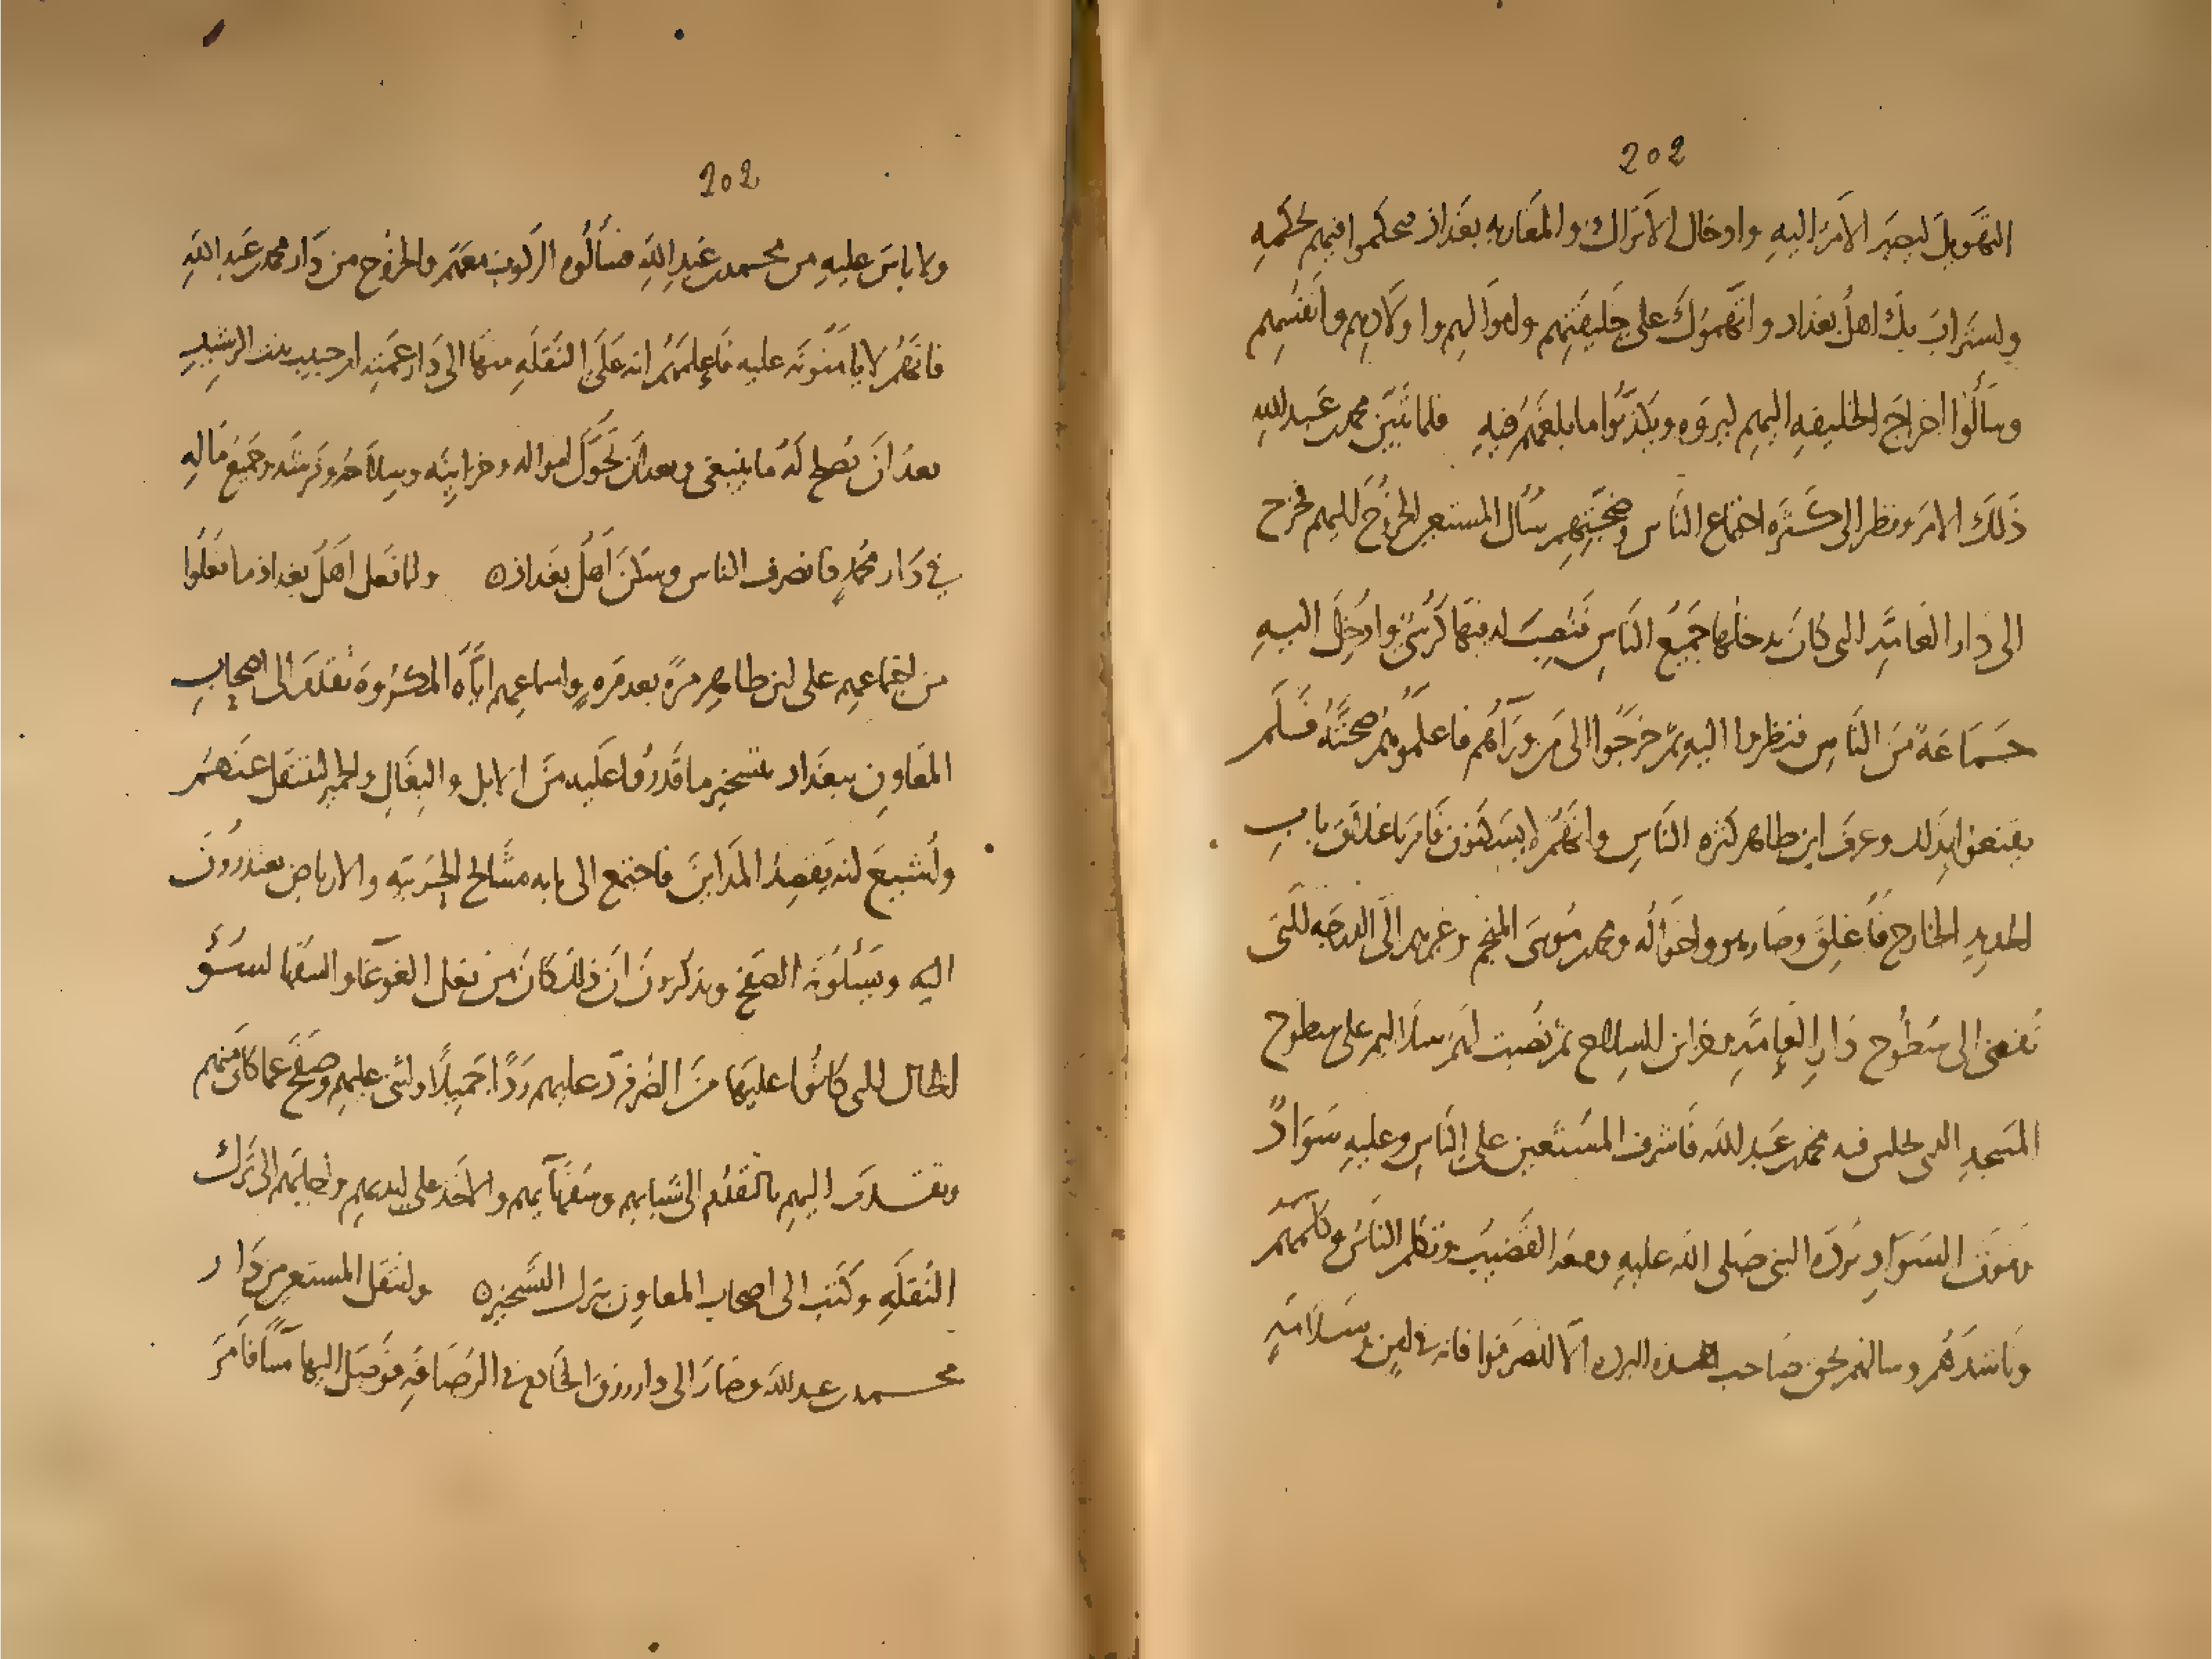 202
التهويل ليصير الامر اليه وادخال الاتراك والمغاربه بغداذ فيحكموا فيهم بحكمهم
ولستراب بك اهل بغداد واتهموك على خليفتهم واموالهم واولادهم وانفسهم
وسألوا اخراج الخليفه اليهم ليروه ويكذبوا ما بلغهم فيه فلما تبين محمد بن عبد الله
ذلك الامر ونظر الى كثره اجتماع الناس وضجتهم سأل المستعين الخروج اليهم فخرج
الى دار العامة التى كان يدخلها جميع الناس فنصب له فيها كرسى وادخل اليه
جماعة من الناس فنظروا اليه ثم خرجوا الى من ورآهم فاعلموهم صحته فلم
يقنعوا بذلك وعرف ابن طاهر كثره الناس وانهم لا يسكنون فامر باغلاق باب
الحديد الخارج فاغلق وصار هو واخواله ومحمد بن موسى المنجم وغيرهم الى الدرجه التى
تفضى الى سطوح دار العامة وخزائن السلاح ثم نصبت لهم سلاليم على سطوح
المسجد الذى يجلس فيه محمد بن عبد الله فاشرف المستعين على الناس وعليه سواد
وفوق السواد برده النبى صلى الله عليه ومعه القضيب وتكلم الناس وكلمهم
وناشدهم وسالهم بحق صاحب هذه البرده الا انصرفوا فانه فى امن وسلامة
202
ولا باس عليه من محمد بن عبد الله فسألوه الركوب معهم والخروج من دار محمد بن عبد الله
فانهم لا يامنونه عليه فاعلمهم انه على النقله منها الى دار عمته ام حبيب بنت الرشيد
بعد ان يصلح له ما ينبغى وبعد ان تحول امواله وخزاينه وسلاحه وفرشه وجميع ماله
فى دار محمد فانصرف الناس وسكن اهل بغداذ ه ولما فعل اهل بغداذ ما فعلوا
من اجتماعهم على ابن طاهر مرة بعد مره واسماعهم اياه المكروه تقدم الى اصحاب
المعاون ببغداد بتسخير ما قدروا عليه من الابل والبغال والحمير لينتقل عنهم
واشيع انه يقصد المداين فاجتمع الى بابه مشايخ الحربيه والارباض يعتذرون
اليه ويسلونه الصفح ويذكرون ان ذلك كان من فعل الغوغآ والسفها لسوء
الحال التى كانوا عليها من الضر فرد عليهم ردا جميلا واثنى عليهم وصفح عما كان منهم
وتقدم اليهم بالتقدم الى شبابهم وسفهآيهم والاخذ على ايديهم واجابهم الى ترك
النقله وكتب الى اصحاب المعاون بترك السخره ه وانتقل المستعين من دار
محمد بن عبد الله وصار الى دار رزق الخادم فى الرصافه فوصل اليها مسآ فامر